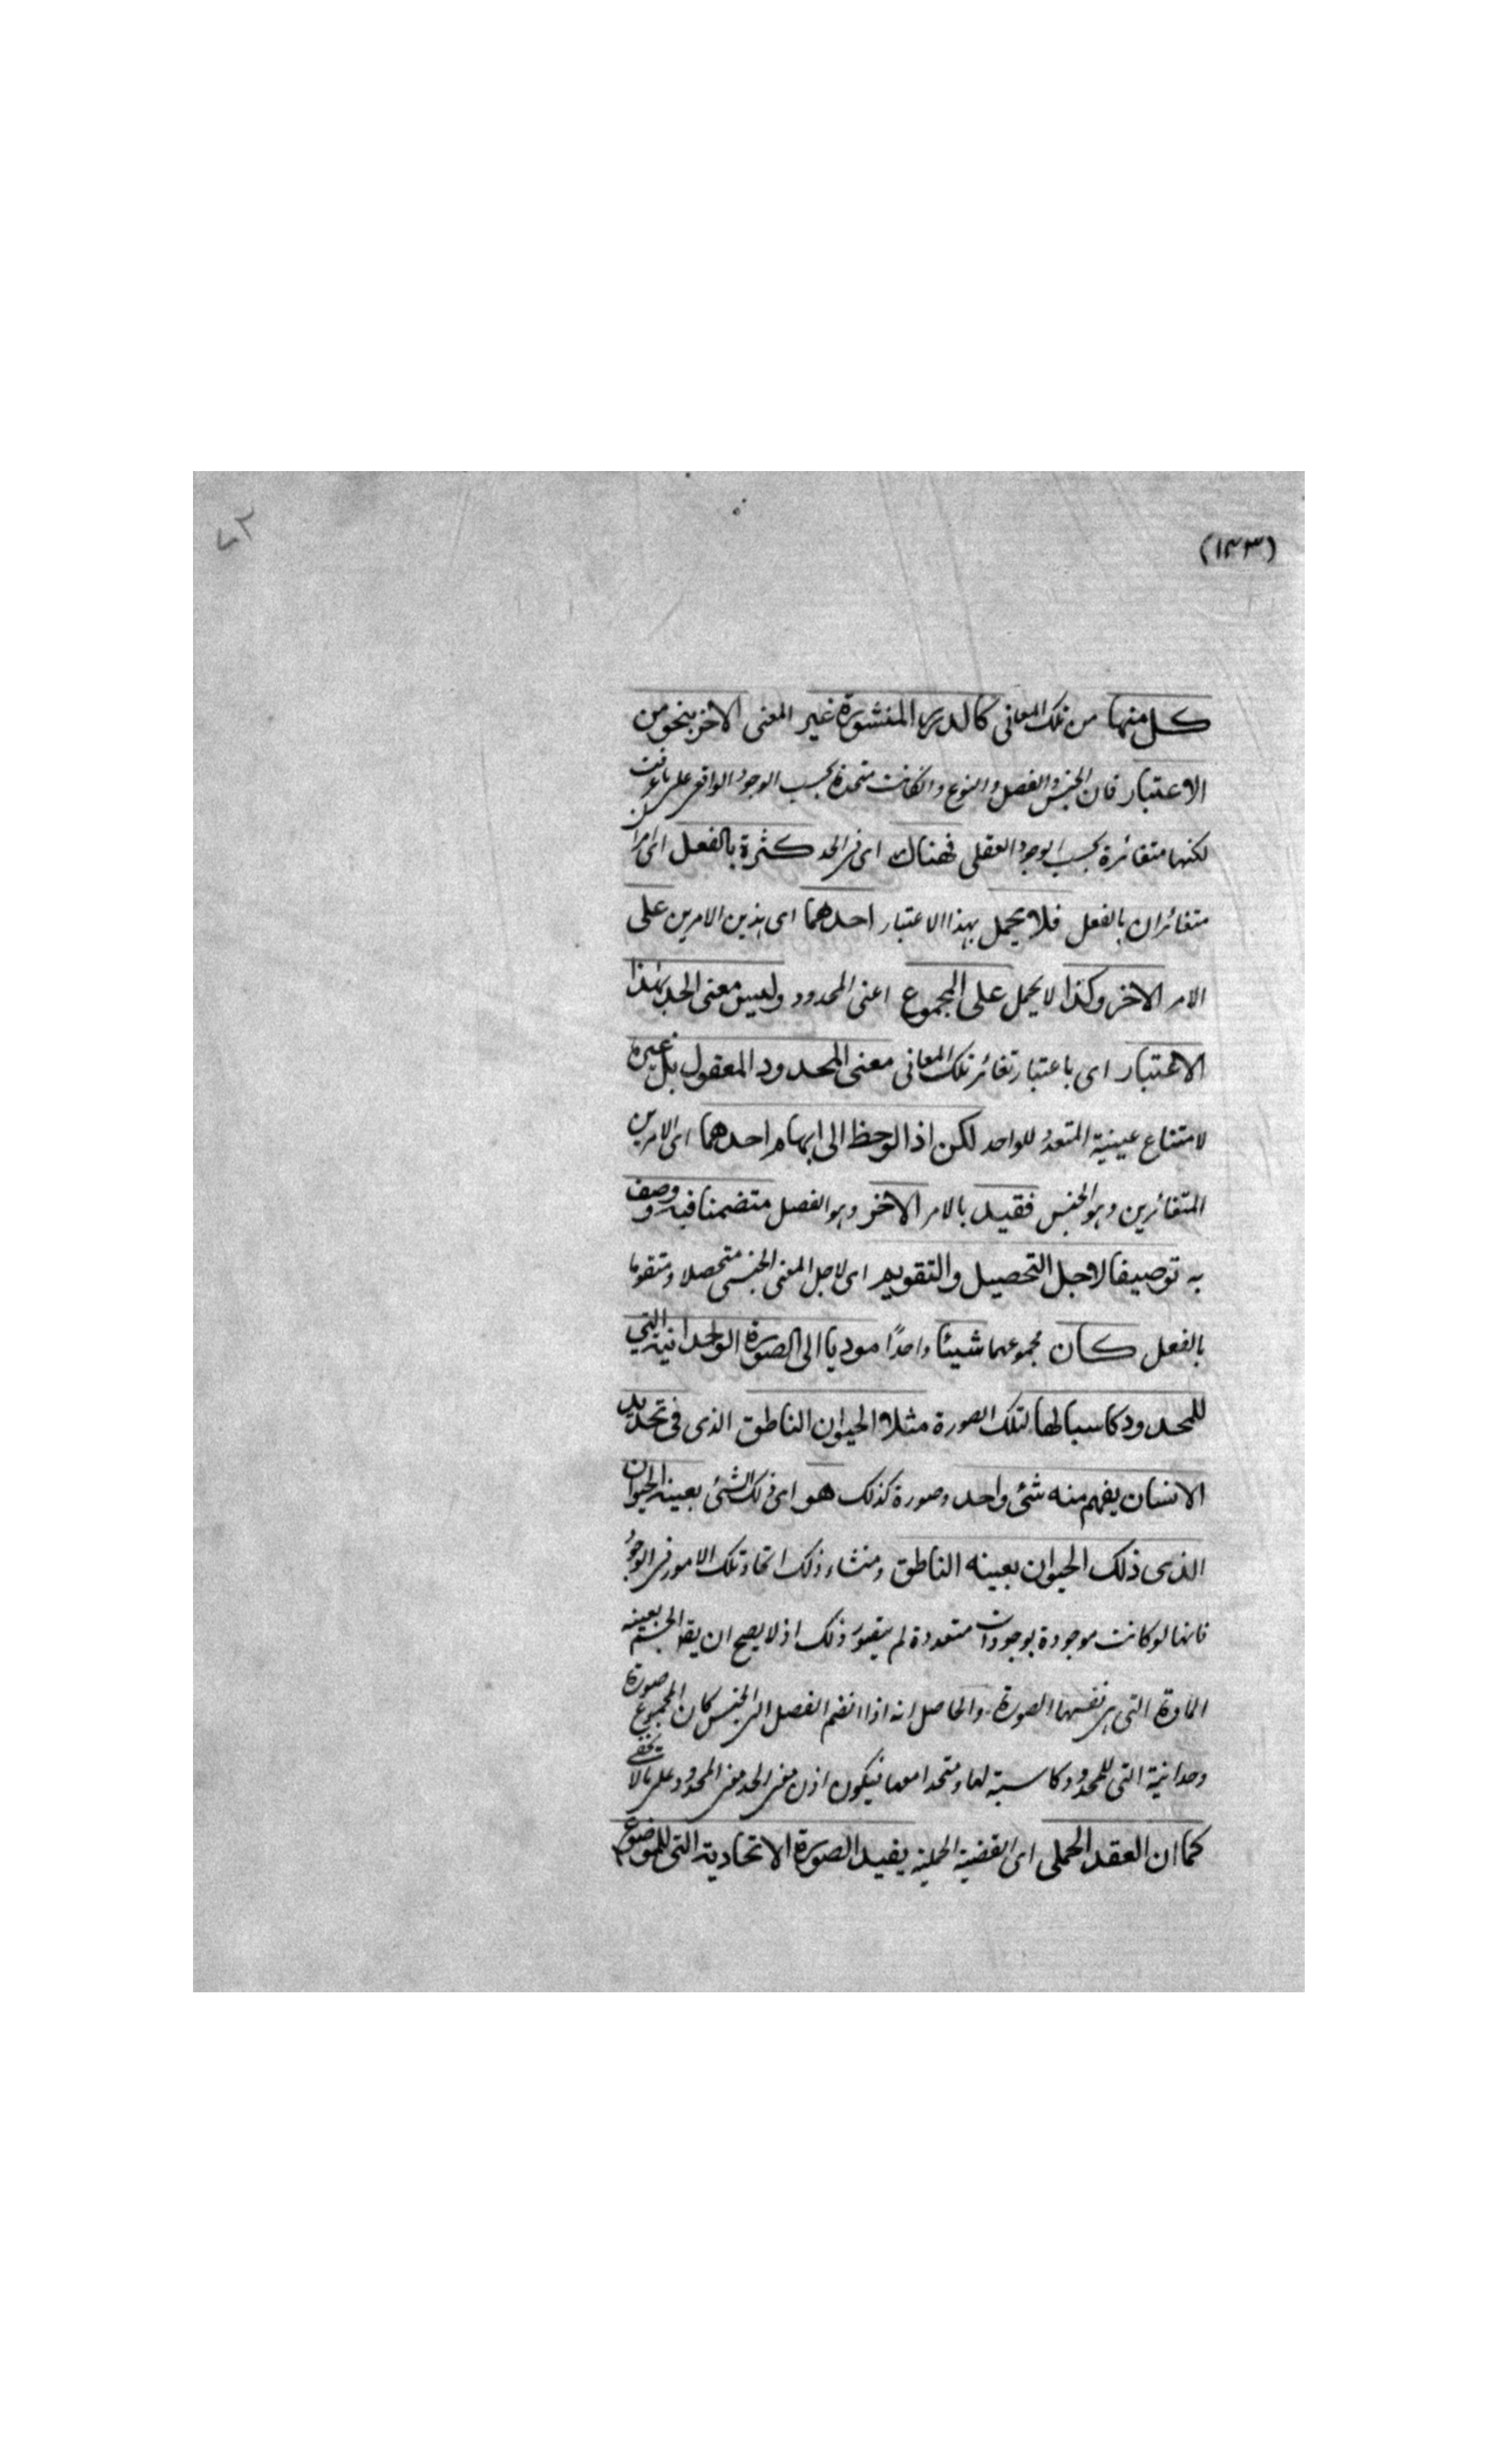 (١٤٣)
٧٢
كل منها من تلك المعانى كالدرر المنشورة غير المعنى الاخر بنحو من
الاعتبار فان الجنس والفصل والنوع وانكانت متحدة بحسب الوجود الواقعى على ما عرفت
لكنها متغائرة بحسب الوجود العقلى فهناك اى فى الحد كثرة بالفعل اى امرا
متغائران بالفعل فلا يحمل بهذا الاعتبار احدهما اى هذين الامرين على
الامر الاخر وكذا لا يحمل على المجموع اعنى المحدود وليس معنى الحد بهذا
الاعتبار اى باعتبار تغائر تلك المعانى معنى المحدود المعقول بل غيره
لامتناع عينية المتعدد للواحد لكن اذا لوحظ الى ابهام احدهما اى الامرين
المتغائرين وهو الجنس فقيد بالامر الاخر وهو الفصل متضمنا فيه ووصف
به توصيفا لاجل التحصيل والتقويم اى لاجل المعنى الجنسى متحصلا ومتقوما
بالفعل كان مجموعهما شيئا واحدًا موديا الى الصورة الوحدانية التى
للمحدود كاسبا لها لتلك الصورة مثلا الحيوان الناطق الذى فى تحديد
الانسان يفهم منه شئ واحد وصورة كذلك هو اى ذلك الشئ بعينه الحيوان
الذى ذلك الحيوان بعينه الناطق ومنشاء ذلك اتحاد تلك الامور فى الوجود
فانها لو كانت موجودة بوجودات متعددة لم يتصور ذلك اذ لا يصح ان يقا الجسم بعينه
المادة التى هى نفسها الصورة والحاصل انه اذا انضم الفصل الى الجنس كان المجموع صورة
وحدانية التى للمحدود كاسبة لها ومتحدا معها فيكون اذن معنى الحد معنى المحدود على ما لا يخفى
كما ان العقد الحملى اى القضية الحملية يفيد الصورة الاتحادية التى للموضوع